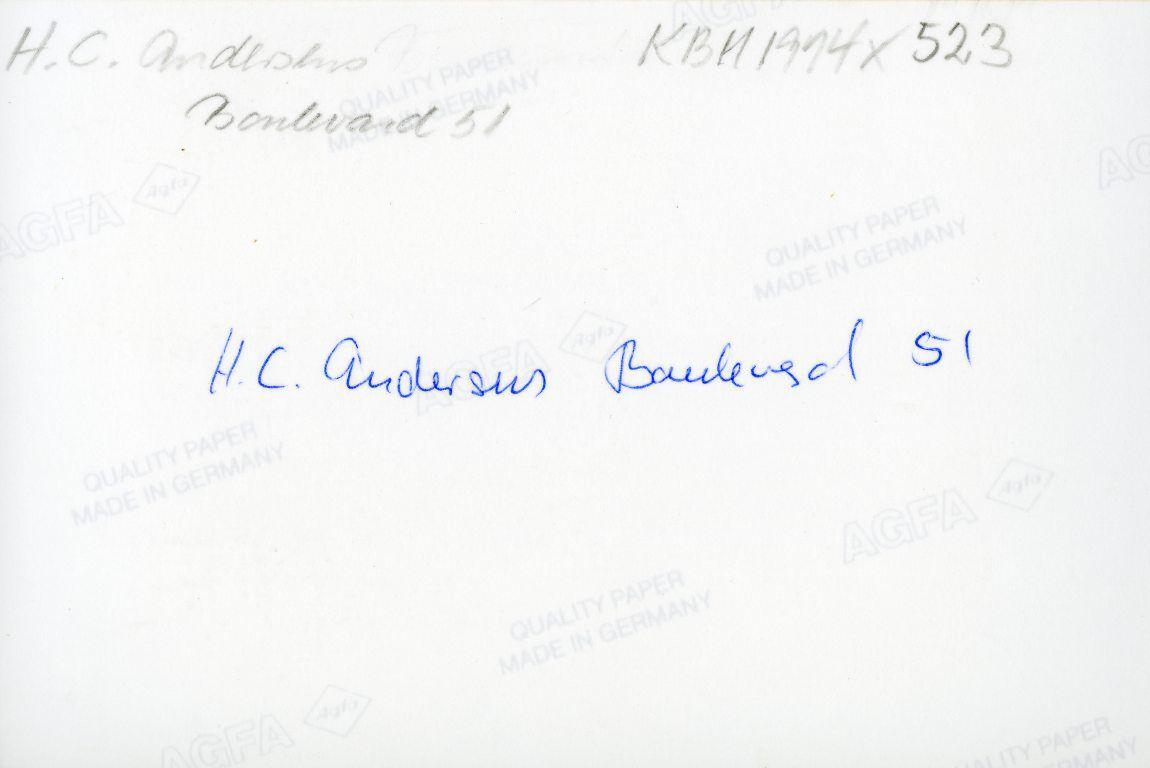 H.C. Andersens
KBH 1994 X 523
Boulevard 51
AGFA
QUALITY PAPER
MADE IN GERMANY
AGFA
Agfa
AG
QUALITY PAPER
MADE IN GERMANY
AGFA
Agfa
H.C. Andersens Boulevard 51
QUALITY PAPER
MADE IN GERMANY
AGFA
Agfa
QUALITY PAPER
MADE IN GERMANY
AGFA
Agfa
QUALITY PAPER
GERMANY